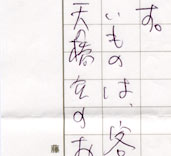 す。
いものは、客
天橋立のお
藤